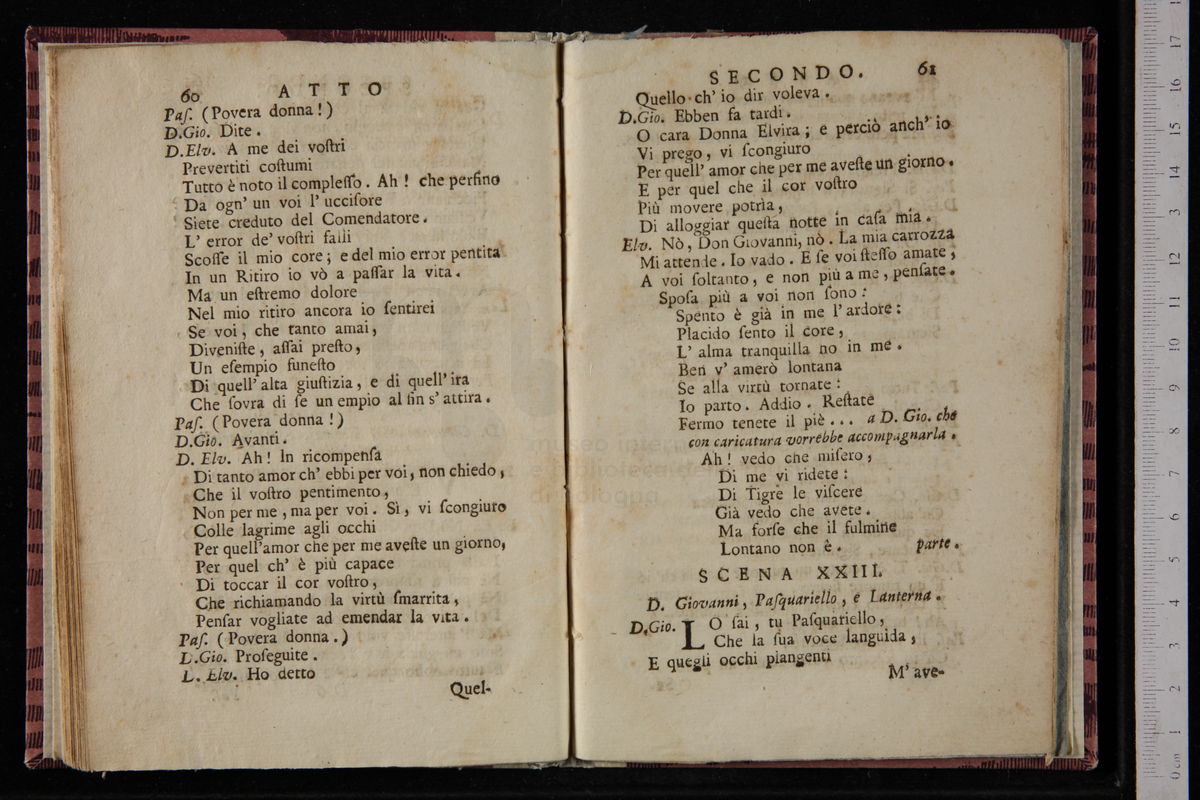 60 ATTO
Paſ. (Povera donna!)
D.Gio. Dite.
D.Elv. A me dei voſtri
Prevertiti coſtumi
Tutto è noto il compleſſo. Ah! che perfino
Da ogn' un voi l' ucciſore
Siete creduto del Comendatore.
L' error de' voſtri falli
Scoſſe il mio core; e del mio error pentita
In un Ritiro io vò a paſſar la vita.
Ma un eſtremo dolore
Nel mio ritiro ancora io ſentirei
Se voi, che tanto amai,
Diveniſte, aſſai preſto,
Un eſempio funeſto
Di quell' alta giuſtizia, e di quell' ira
Che ſovra di ſe un empio al fin s' attira.
Paſ. (Povera donna!)
D.Gio. Avanti.
D. Elv. Ah! In ricompenſa
Di tanto amor ch' ebbi per voi, non chiedo,
Che il voſtro pentimento,
Non per me, ma per voi. Sì, vi ſcongiuro
Colle lagrime agli occhi
Per quell'amor che per me aveſte un giorno,
Per quel ch' è più capace
Di toccar il cor voſtro,
Che richiamando la virtù ſmarrita,
Penſar vogliate ad emendar la vita.
Paſ. (Povera donna.)
D.Gio. Proſeguite.
D. Elv. Ho detto
Quel-
SECONDO. 61
Quello ch' io dir voleva.
D.Gio. Ebben fa tardi.
O cara Donna Elvira; e perciò anch' io
Vi prego, vi ſcongiuro
Per quell' amor che per me aveſte un giorno.
E per quel che il cor voſtro
Più movere potrìa,
Di alloggiar queſta notte in caſa mia.
Elv. Nò, Don Giovanni, nò. La mia carrozza
Mi attende. Io vado. E ſe voi ſteſſo amate,
A voi ſoltanto, e non più a me, penſate.
Spoſa più a voi non ſono:
Spento è già in me l'ardore:
Placido ſento il core,
L' alma tranquilla ho in me.
Ben v' amerò lontana
Se alla virtù tornate:
Io parto. Addio. Reſtate
Fermo tenete il piè... a D. Gio. che
con caricatura vorrebbe accompagnarla.
Ah! vedo che miſero,
Di me vi ridete:
Di Tigre le viſcere
Già vedo che avete.
Ma forſe che il fulmine
Lontano non è. parte.
SCENA XXIII.
D. Giovanni, Paſquariello, e Lanterna.
D.Gio. LO ſai, tu Paſquariello,
Che la ſua voce languida,
E quegli occhi piangenti
M' ave-